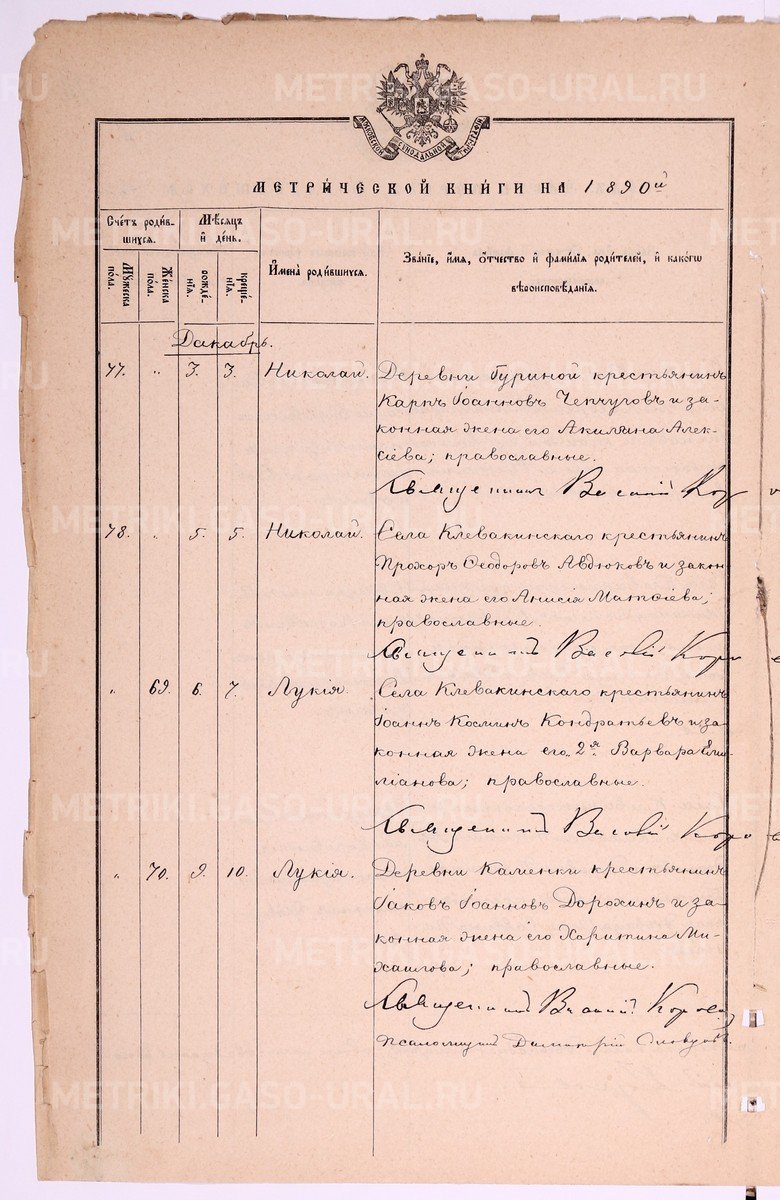 МОСКОВСКОЙ СѴНОДАЛЬНОЙ ТИПОГРАФІИ
МЕТРИ́ЧЕСКОЙ КНИ́ГИ НА 1890й
Сче́тъ роди́в-
шихся.
Мѣ́сяцъ
и҆ де́нь.
И҆мена̀ роди́вшихся.
Зва́ніе, и҆́мя, ѻ҆́тчество и҆ фами́лїя роди́телей, и҆ како́гѡ
вѣроисповѣ́данїя.
Мꙋ́жеска
по́ла.
Же́нска
по́ла.
рожде́-
нїя.
креще́-
нїя.
Декабрь.
77. " 3. 3. Николай. Деревни Буриной крестьянинъ
Карпъ Іоанновъ Чепчуговъ и за-
конная жена его Акилина Алек-
сіева; православные.
Священникъ Василій
78. " 5. 5. Николай. Села Клевакинскаго крестьянинъ
Прохоръ Ѳеодоровъ Авдюковъ и закон-
ная жена его Анисія Матѳіева;
православные.
Священникъ Василій
" 69. 6. 7. Лукія. Села Клевакинскаго крестьянинъ
Іоаннъ Косминъ Кондратьевъ и за-
конная жена его 2я Варвара Еми-
ліанова; православные.
Священникъ Василій
" 70. 9. 10. Лукія. Деревни Каменки крестьянинъ
Іаковъ Іоанновъ Дорохинъ и за-
конная жена его Харитина Ми-
хаилова; православные.
Священникъ Василій
Псаломщикъ Димитрій
METRIKI.GASO-URAL.RU